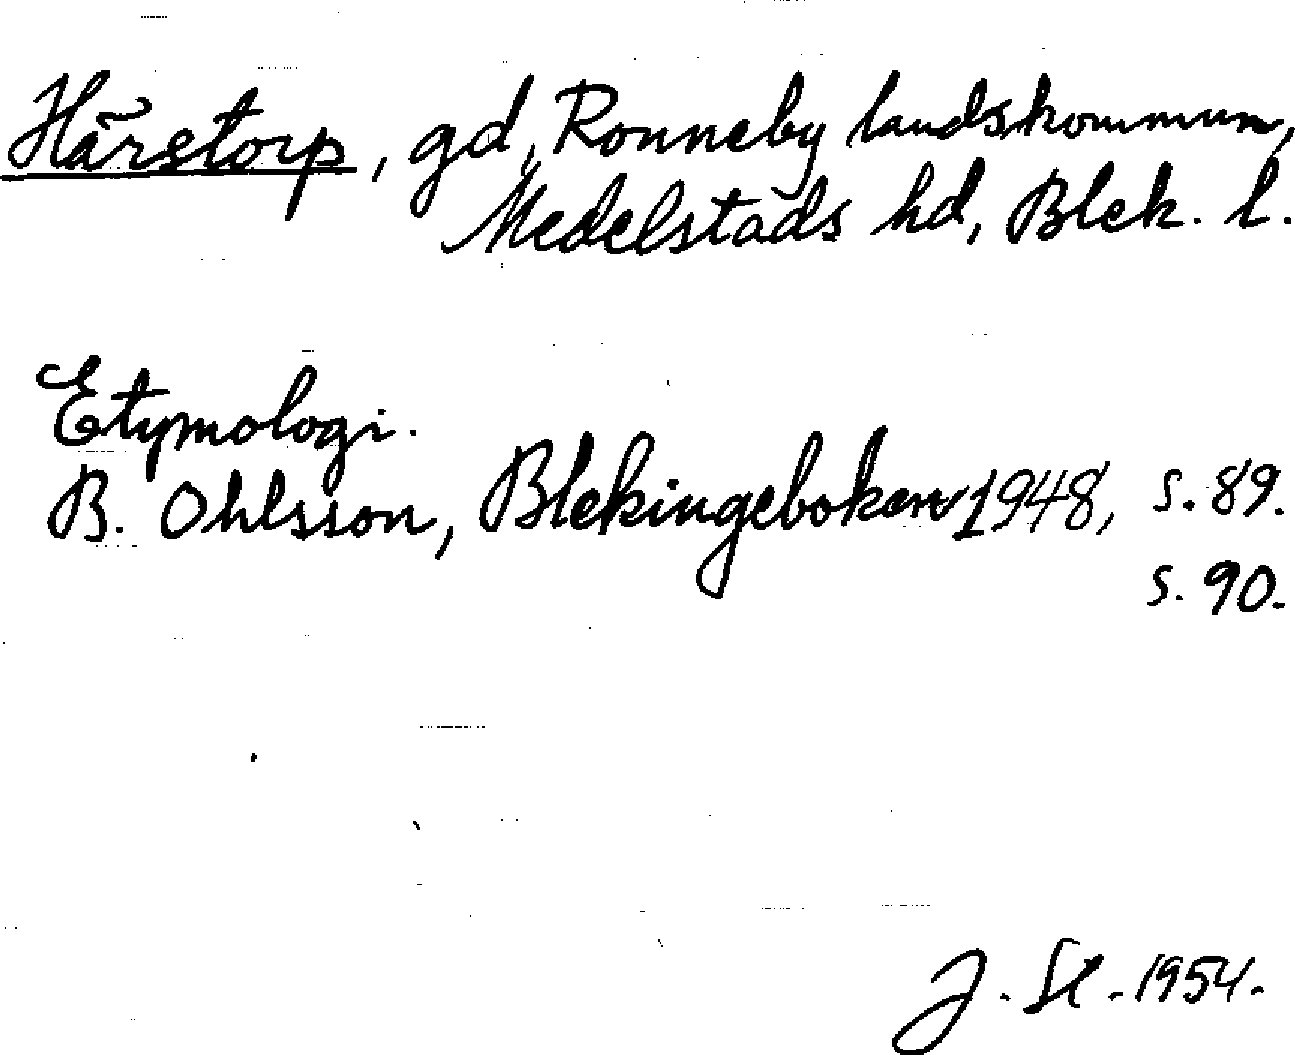 Härstorp, gd, Ronneby landskommun,
Medelstads hd, Blek. l.
Etymologi.
B. Ohlsson, Blekingeboken 1948, s. 89.
s. 90.
J. St. 1954.